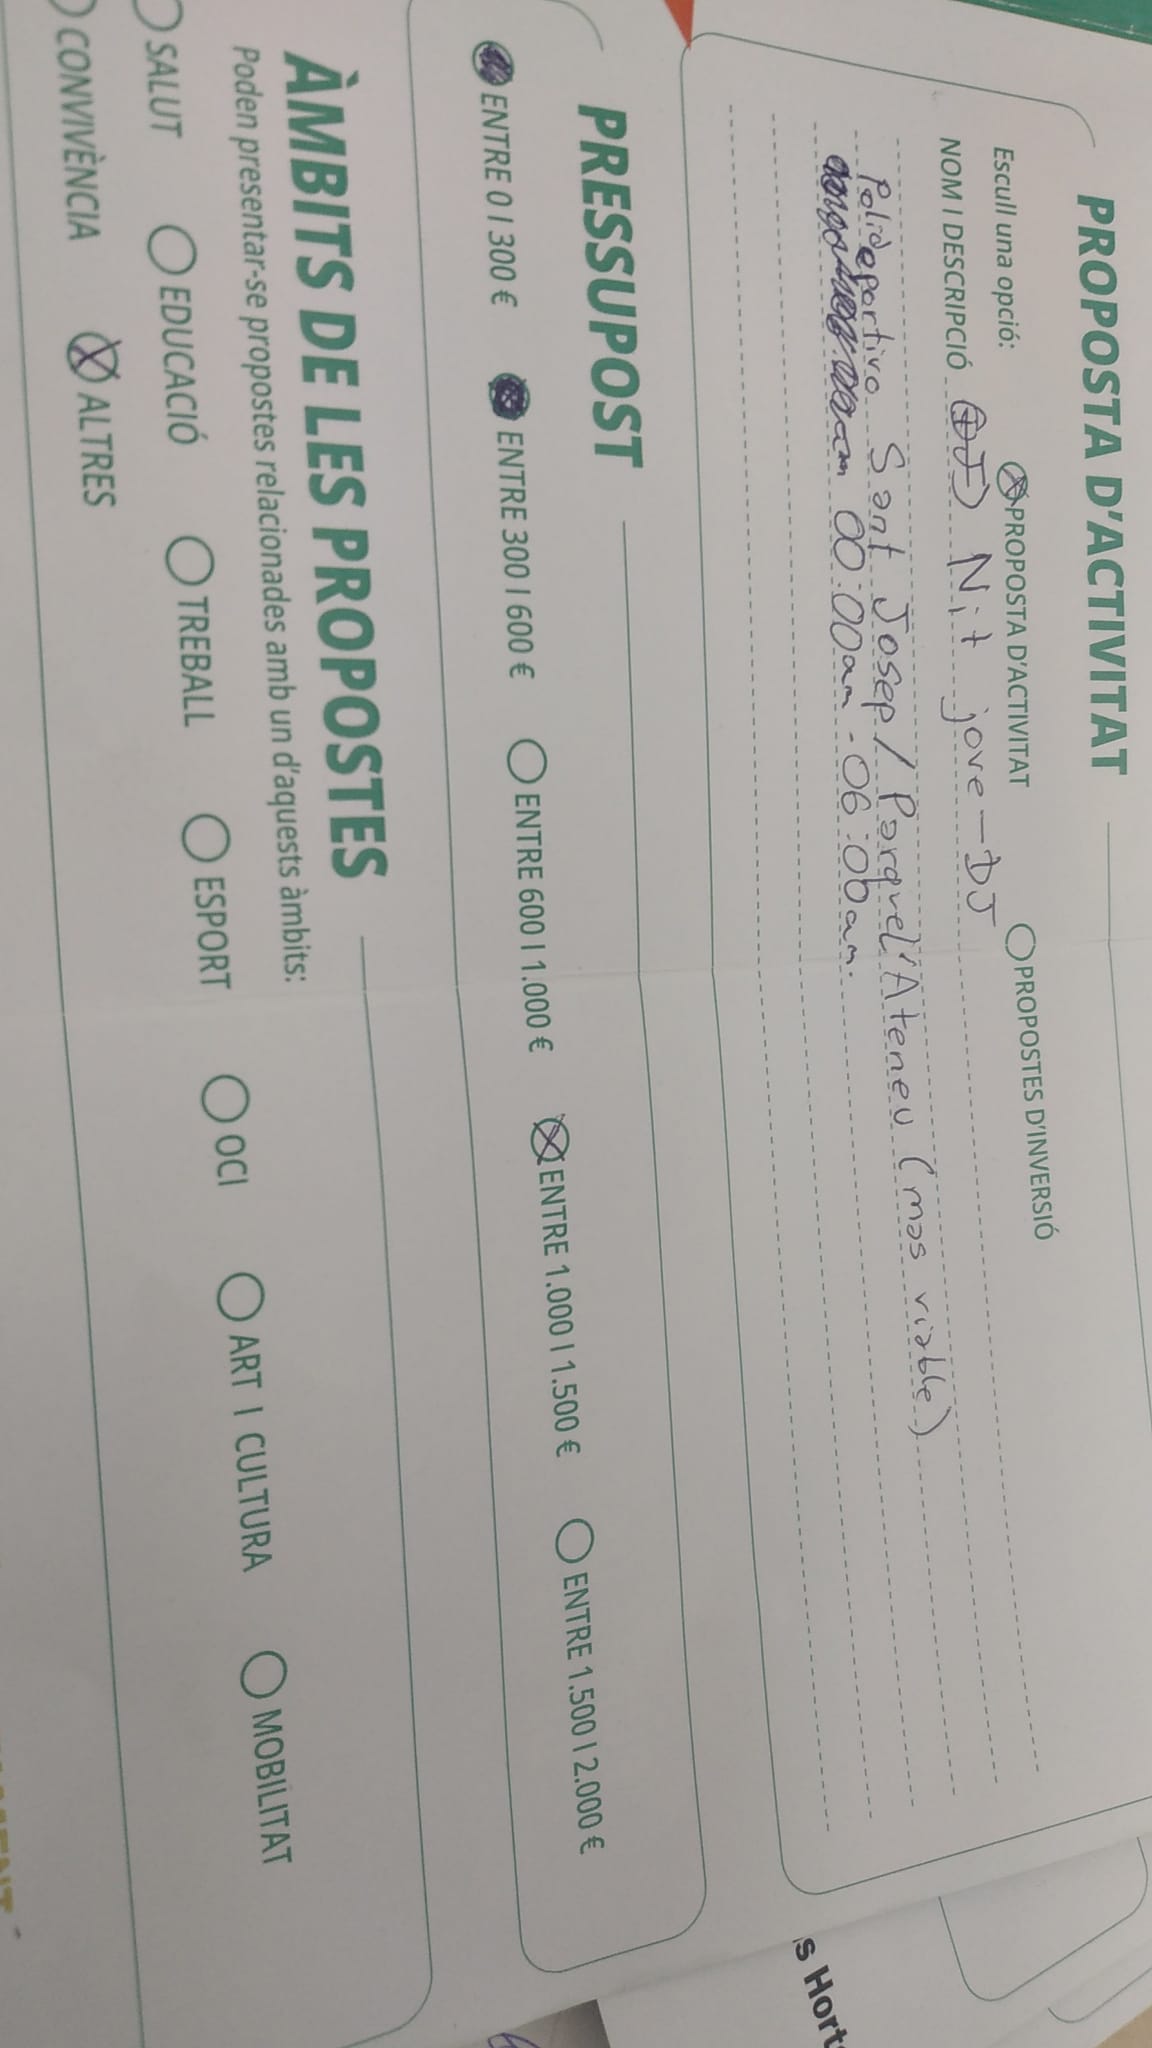 PROPOSTA D'ACTIVITAT
Escull una opció: PROPOSTA D'ACTIVITAT PROPOSTES D'INVERSIÓ
NOM I DESCRIPCIÓ Nit jove-DJ
Polideportivo Sant Josep / Parque l'Ateneu (mas viable)
00:00am - 06:00am.
PRESSUPOST
ENTRE 0 I 300 € ENTRE 300 I 600 € ENTRE 600 I 1.000 € ENTRE 1.000 I 1.500 € ENTRE 1.500 I 2.000 €
ÀMBITS DE LES PROPOSTES
Poden presentar-se propostes relacionades amb un d'aquests àmbits:
SALUT EDUCACIÓ TREBALL ESPORT OCI ART I CULTURA MOBILITAT
CONVIVÈNCIA ALTRES
s Horts